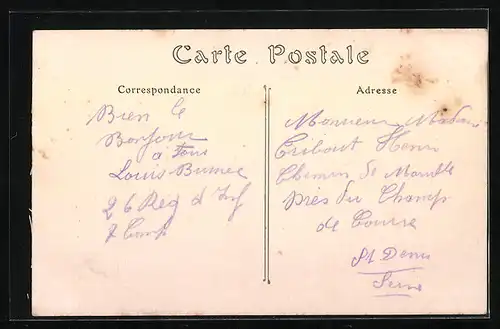 Carte Postale
Correspondance
Bien le
Bonjour
a tous
Louis
26 Reg d Inf
7 Comp
Adresse
Monsieur Madame
Henri
Chemin de
près du Champ
de Course
St Denis
Seine